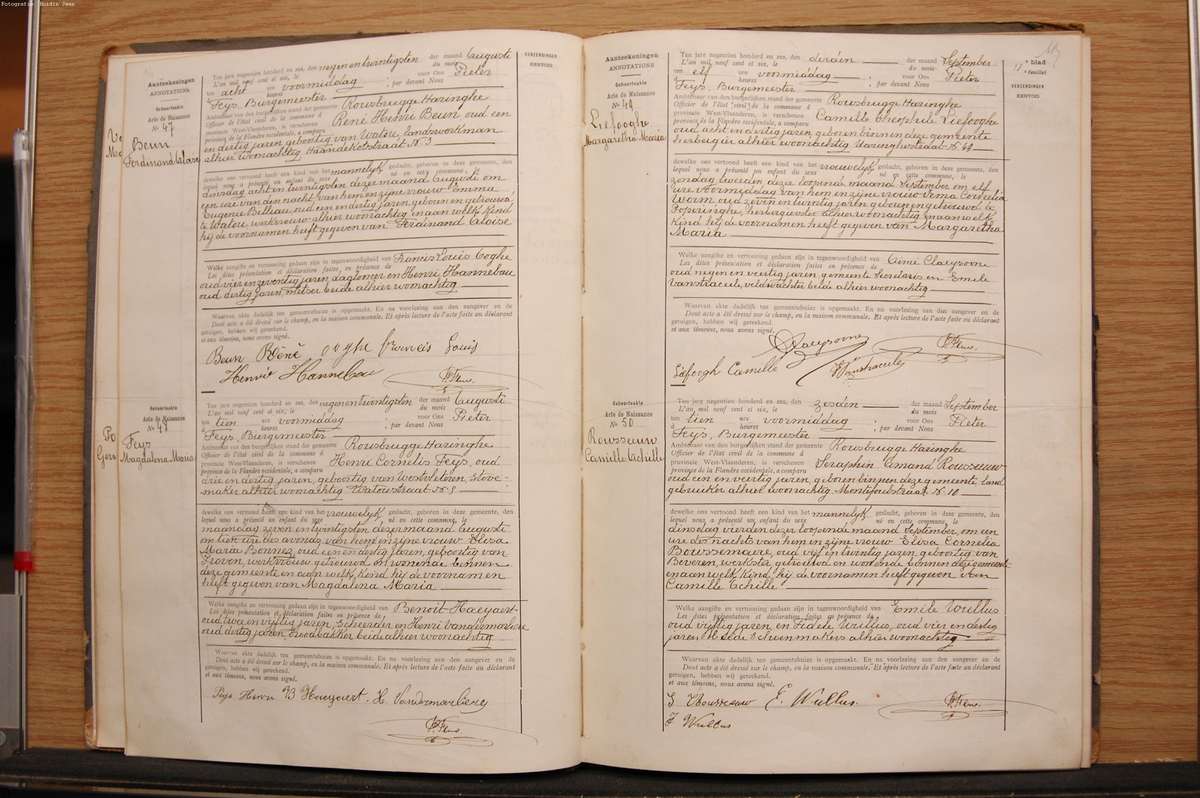 Fotografie: Huidin Jean
Aanteekeningen
ANNOTATIONS
Geboorteakte
Acte de Naissance
No 47
Beun
Ferdinand Aloïse
Ten jare negentien honderd en zes, den negen en twintigsten der maand Augusti
L'an mil neuf cent et six, le du mois
om acht ure voormiddag voor Ons Pieter
heures ; par devant Nous
Feys, Burgemeester
Ambtenaar van den burgerlijken stand der gemeente Rousbrugge Haringhe
Officier de l'état civil de la commune d
provincie West-Vlaanderen, is verschenen René Henri Beun oud een
province de la Flandre occidentale, a comparu
en dertig jaren, geboortig van Watou, landswerkman
alhier woonachtig Haandekotstraat No 3
dewelke ons vertoond heeft een kind van het mannelijk geslacht, geboren in deze gemeente, den
lequel nous a présenté un enfant du sexe né en cette commune, le
dinsdag acht en twintigsten dezer maand Augusti om
een ure van den nacht van hem en zijne vrouw Emma
Eugenie Billiau, oud een en dertig jaren, geboren en getrouwd
te Watou, werkvrouw alhier woonachtig en aan welk kind
hij de voornamen heeft gegeven van Ferdinand Aloïse
Welke aangifte en vertooning gedaan zijn in tegenwoordigheid van Francis Louis Ooghe
Les dites présentation et déclaration faites en présence de
oud vier en zeventig jaren, daglooner en Henri Hannebau
oud dertig jaren, metser beide alhier woonachtig
Waarvan akte dadelijk ten gemeentehuize is opgemaakt. En na voorlezing aan den aangever en de
Dont acte a été dressé sur le champ, en la maison communale. Et après lecture de l'acte faite au déclarant
getuigen, hebben wij geteekend.
et aux témoins, nous avons signé.
Beun Réné ooghe francis Louis
Henri Hannebau P. Feys
Geboorteakte
Acte de Naissance
No 48
Feys
Magdalena Maria
Ten jare negentien honderd en zes, den negenentwintigsten der maand Augusti
L'an mil neuf cent et six, le du mois
om tien ure voormiddag voor Ons Pieter
heures ; par devant Nous
Feys, Burgemeester
Ambtenaar van den burgerlijken stand der gemeente Rousbrugge Haringhe
Officier de l'état civil de la commune d
provincie West-Vlaanderen, is verschenen Henri Cornelis Feys, oud
province de la Flandre occidentale, a comparu
drie en dertig jaren, geboortig van Westvleteren, stove-
maker alhier woonachtig Watoustraat No 8
dewelke ons vertoond heeft een kind van het vrouwelijk geslacht, geboren in deze gemeente, den
lequel nous a présenté un enfant du sexe né en cette commune, le
maandag zeven en twintigsten dezer maand Augusti
om ure des avonds van hem en zijne vrouw Elisa
Maria Bonnez, oud een en dertig jaren, geboortig van
Proven, werkvrouw getrouwd en wonende binnen
deze gemeente en aan welk kind hij de voornamen
heeft gegeven van Magdalena Maria
Welke aangifte en vertooning gedaan zijn in tegenwoordigheid van Benoit Haeyaert
Les dites présentation et déclaration faites en présence de
oud twee en vijftig jaren, Scheerder en Henri Vandermarliere
oud dertig jaren, bakker beide alhier woonachtig
Waarvan akte dadelijk ten gemeentehuize is opgemaakt. En na voorlezing aan den aangever en de
Dont acte a été dressé sur le champ, en la maison communale. Et après lecture de l'acte faite au déclarant
getuigen, hebben wij geteekend.
et aux témoins, nous avons signé.
Feys Henri B Haeyaert H. Vandermarliere
P. Feys
VERZENDINGEN
RENVOIS.
Aanteekeningen
ANNOTATIONS
Geboorteakte
Acte de Naissance
No 49
Liefooghe
Margaretha Maria
Ten jare negentien honderd en zes, den derden der maand September
L'an mil neuf cent et six, le du mois
om elf ure voormiddag voor Ons Pieter
heures ; par devant Nous
Feys, Burgemeester
Ambtenaar van den burgerlijken stand der gemeente Rousbrugge Haringhe
Officier de l'état civil de la commune d
provincie West-Vlaanderen, is verschenen Camille Theophile Liefooghe
province de la Flandre occidentale, a comparu
oud acht en dertig jaren, geboren binnen deze gemeente
herbergier alhier woonachtig Haringhestraat No 69
dewelke ons vertoond heeft een kind van het vrouwelijk geslacht, geboren in deze gemeente, den
lequel nous a présenté un enfant du sexe né en cette commune, le
zondag tweeden dezer loopende maand September om elf
ure voormiddag van hem en zijne vrouw Irma Cornelia
Worm oud zeven en twintig jaren geboren en getrouwd te
Poperinghe, herbergierster alhier woonachtig en aan welk
kind hij de voornamen heeft gegeven van Margaretha
Maria
Welke aangifte en vertooning gedaan zijn in tegenwoordigheid van Aimé Claeysoone
Les dites présentation et déclaration faites en présence de
oud negen en veertig jaren, gemeente Secretaris en Emile
Vanstraceele, veldwachter beide alhier woonachtig
Waarvan akte dadelijk ten gemeentehuize is opgemaakt. En na voorlezing aan den aangever en de
Dont acte a été dressé sur le champ, en la maison communale. Et après lecture de l'acte faite au déclarant
getuigen, hebben wij geteekend.
et aux témoins, nous avons signé.
Claeysoone P. Feys
Liefoogh Camille
Geboorteakte
Acte de Naissance
No 50
Rousseeuw
Camille Achille
Ten jare negentien honderd en zes, den zesden der maand September
L'an mil neuf cent et six, le du mois
om tien ure voormiddag voor Ons Pieter
heures ; par devant Nous
Feys, Burgemeester
Ambtenaar van den burgerlijken stand der gemeente Rousbrugge Haringhe
Officier de l'état civil de la commune d
provincie West-Vlaanderen, is verschenen Seraphin Amand Rousseeuw
province de la Flandre occidentale, a comparu
oud een en veertig jaren, geboren binnen deze gemeente land
gebruiker alhier woonachtig No 10
dewelke ons vertoond heeft een kind van het mannelijk geslacht, geboren in deze gemeente, den
lequel nous a présenté un enfant du sexe né en cette commune, le
dinsdag vierden dezer loopende maand September, om een
ure des nachts van hem en zijne vrouw Elisa Cornelia
Boussemaere, oud vijf en twintig jaren, geboortig van
Beveren, werkster getrouwd en wonende binnen deze gemeente
en aan welk kind hij de voornamen heeft gegeven van
Camille Achille
Welke aangifte en vertooning gedaan zijn in tegenwoordigheid van Emile Wullus
Les dites présentation et déclaration faites en présence de
oud vijftig jaren, en Fidele Wullus, oud vier en dertig
jaren beide Schoenmakers alhier woonachtig
Waarvan akte dadelijk ten gemeentehuize is opgemaakt. En na voorlezing aan den aangever en de
Dont acte a été dressé sur le champ, en la maison communale. Et après lecture de l'acte faite au déclarant
getuigen, hebben wij geteekend.
et aux témoins, nous avons signé.
S Rousseeuw E. Wullus P. Feys
F Wullus
blad
feuillet
VERZENDINGEN
RENVOIS.